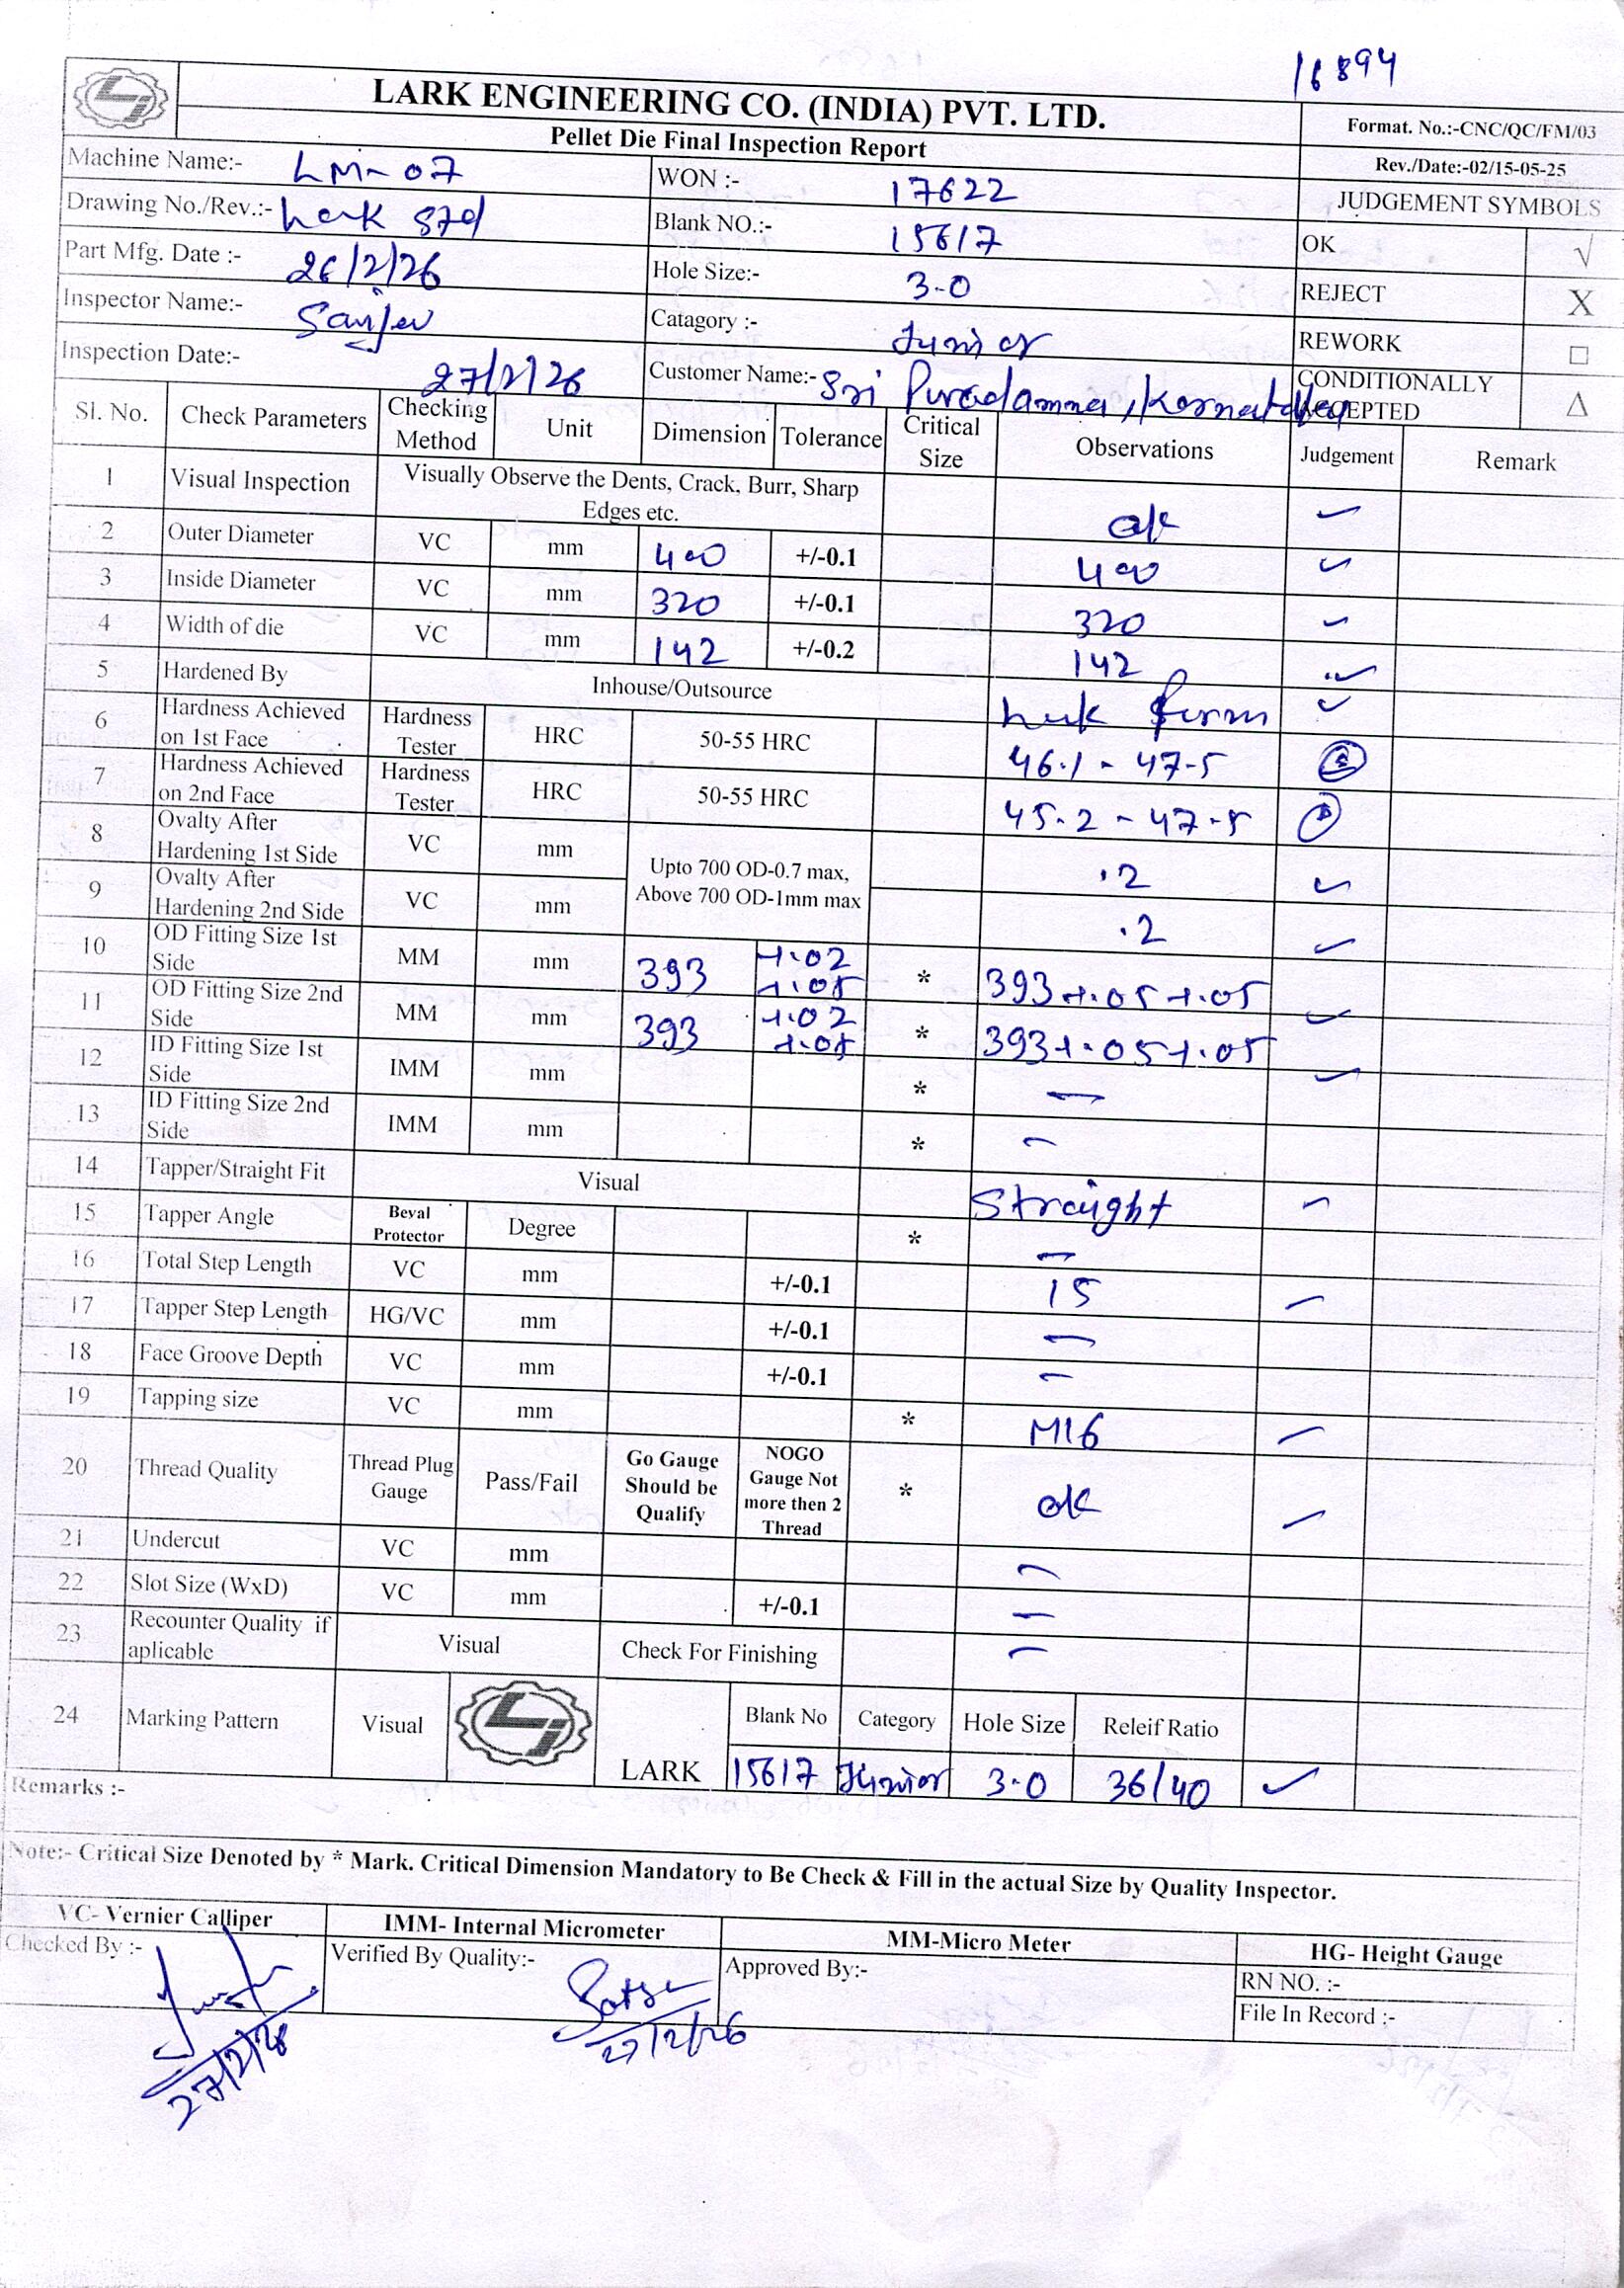 16894
LARK ENGINEERING CO. (INDIA) PVT. LTD.
Pellet Die Final Inspection Report
Format. No.:-CNC/QC/FM/03
Rev./Date:-02/15-05-25
Machine Name:- LM-07 WON :- 17622 JUDGEMENT SYMBOLS
Drawing No./Rev.:- Lark std Blank NO.:- 15617 OK √
Part Mfg. Date :- 26/2/26 Hole Size:- 3.0 REJECT X
Inspector Name:- Sanjev Catagory :- Junior REWORK □
Inspection Date:- 27/2/26 Customer Name:- Sri Puradamma, CONDITIONALLY ACCEPTED △
Sl. No. Check Parameters Checking Method Unit Dimension Tolerance Critical Size Observations Judgement Remark
1 Visual Inspection Visually Observe the Dents, Crack, Burr, Sharp Edges etc. ok ✓
2 Outer Diameter VC mm 400 +/-0.1 400 ✓
3 Inside Diameter VC mm 320 +/-0.1 320 ✓
4 Width of die VC mm 142 +/-0.2 142 ✓
5 Hardened By Inhouse/Outsource ✓
6 Hardness Achieved on 1st Face Hardness Tester HRC 50-55 HRC 46.1 - 47.5
7 Hardness Achieved on 2nd Face Hardness Tester HRC 50-55 HRC 45.2 - 47.5
8 Ovalty After Hardening 1st Side VC mm Upto 700 OD-0.7 max, Above 700 OD-1mm max .2 ✓
9 Ovalty After Hardening 2nd Side VC mm .2 ✓
10 OD Fitting Size 1st Side MM mm 393 +.02 +.05 * 393+.05+.05 ✓
11 OD Fitting Size 2nd Side MM mm 393 +.02 +.05 * 393+.05+.05 ✓
12 ID Fitting Size 1st Side IMM mm * —
13 ID Fitting Size 2nd Side IMM mm * —
14 Tapper/Straight Fit Visual Straight ✓
15 Tapper Angle Beval Protector Degree * —
16 Total Step Length VC mm +/-0.1 15 ✓
17 Tapper Step Length HG/VC mm +/-0.1 —
18 Face Groove Depth VC mm +/-0.1 —
19 Tapping size VC mm * M16 ✓
20 Thread Quality Thread Plug Gauge Pass/Fail Go Gauge Should be Qualify NOGO Gauge Not more then 2 Thread * ok ✓
21 Undercut VC mm —
22 Slot Size (WxD) VC mm +/-0.1 —
23 Recounter Quality if aplicable Visual Check For Finishing —
24 Marking Pattern Visual LARK Blank No Category Hole Size Releif Ratio
15617 Junior 3.0 36/40 ✓
Remarks :-
Note:- Critical Size Denoted by * Mark. Critical Dimension Mandatory to Be Check & Fill in the actual Size by Quality Inspector.
VC- Vernier Calliper IMM- Internal Micrometer MM-Micro Meter HG- Height Gauge
Checked By :- Verified By Quality:- Approved By:- RN NO. :-
File In Record :-
27/2/26 27/2/26